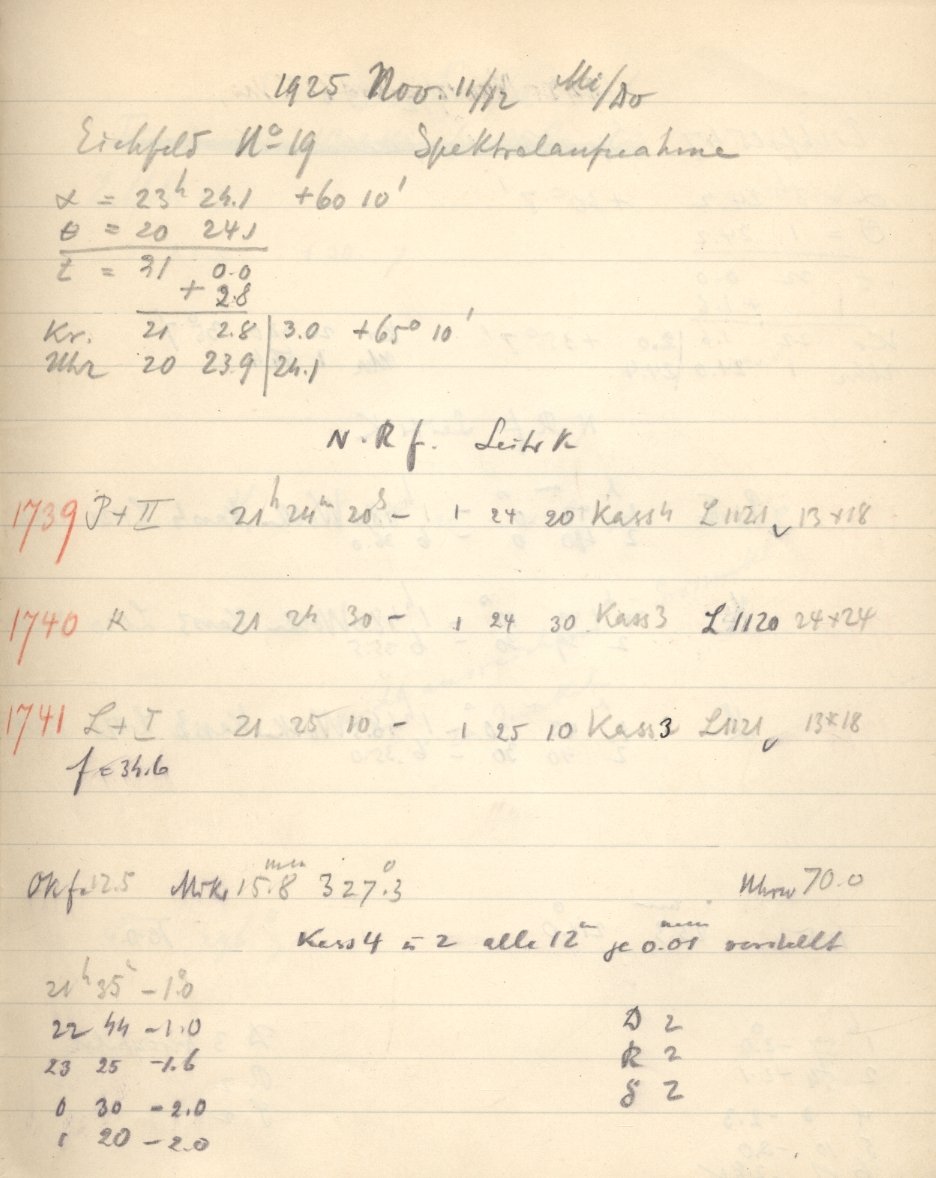 1925 Nov. 11/12 Mi/Do
Eichfeld No 19 Spektralaufnahme
α = 23h 24.1 +60 10'
θ = 20 24.1
t = 21 0.0
+ 2.8
Kr. 21 2.8 | 3.0 +65° 10'
Uhr 20 23.9 | 24.1
N. R f. Leitr K
1739 P+II 21h 24m 20s – 1 24 20 Kass 4 L1121 13×18
1740 K 21 24 30 – 1 24 30 Kass 3 L1120 24×24
1741 L+I 21 25 10 – 1 25 10 Kass 3 L1121 13×18
f = 34.6
Okf. 12.5 Mikr 15.8 mm 327.3° Uhrw 70.0
Kass 4 u 2 alle 12m je 0.01 mm verstellt
21h 35m – 1.0°
22 44 – 1.0
23 25 – 1.6
0 30 – 2.0
1 20 – 2.0
D 2
R 2
S 2